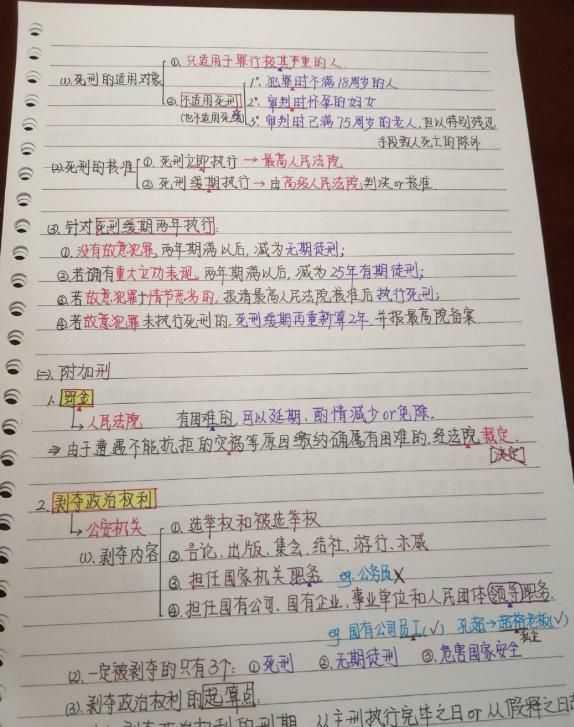 ①. 只适用于罪行极其严重的人
(1). 死刑的适用对象
②. 不适用死刑
(也不适用死缓)
1°. 犯罪时不满18周岁的人
2°. 审判时怀孕的妇女
3°. 审判时已满75周岁的老人, 但以特别残忍
手段致人死亡的除外
(2) 死刑的核准
①. 死刑立即执行 → 最高人民法院
②. 死刑缓期执行 → 由高级人民法院判决or核准
(3). 针对死刑缓期两年执行:
①. 没有故意犯罪, 两年期满以后, 减为无期徒刑;
②若确有重大立功表现, 两年期满以后, 减为25年有期徒刑;
③若故意犯罪+情节恶劣的, 报请最高人民法院核准后执行死刑;
④若故意犯罪未执行死刑的, 死刑缓期再重新算2年, 并报最高院备案
(二). 附加刑
1. 罚金
↳ 人民法院 有困难的, 可以延期、酌情减少or免除.
⇒ 由于遭遇不能抗拒的灾祸等原因缴纳确属有困难的, 经法院裁定.
[决定]
2. 剥夺政治权利
↳ 公安机关
(1). 剥夺内容
①. 选举权和被选举权
②. 言论, 出版, 集会, 结社, 游行, 示威
③. 担任国家机关职务 eg. 公务员X
④. 担任国有公司、国有企业, 事业单位和人民团体领导职务.
eg 国有公司员工(√)
(2). 一定被剥夺的只有3个: ①死刑 ②. 无期徒刑 ③. 危害国家安全
(3). 剥夺政治权利的起算点
剥夺政治权利的刑期, 从主刑执行完毕之日or从假释之日起